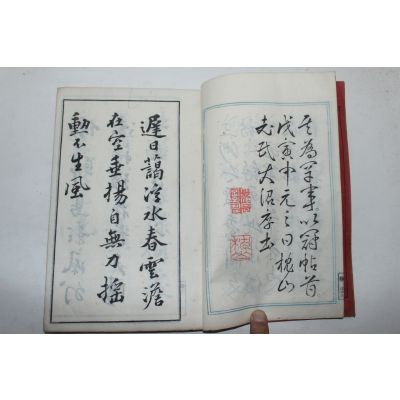 其為筆事以冠帖首
戊寅中元之日槐山
老氏大沼厚書
遲日藹浮水春雲澹
在空垂楊自無力搖
動不生風